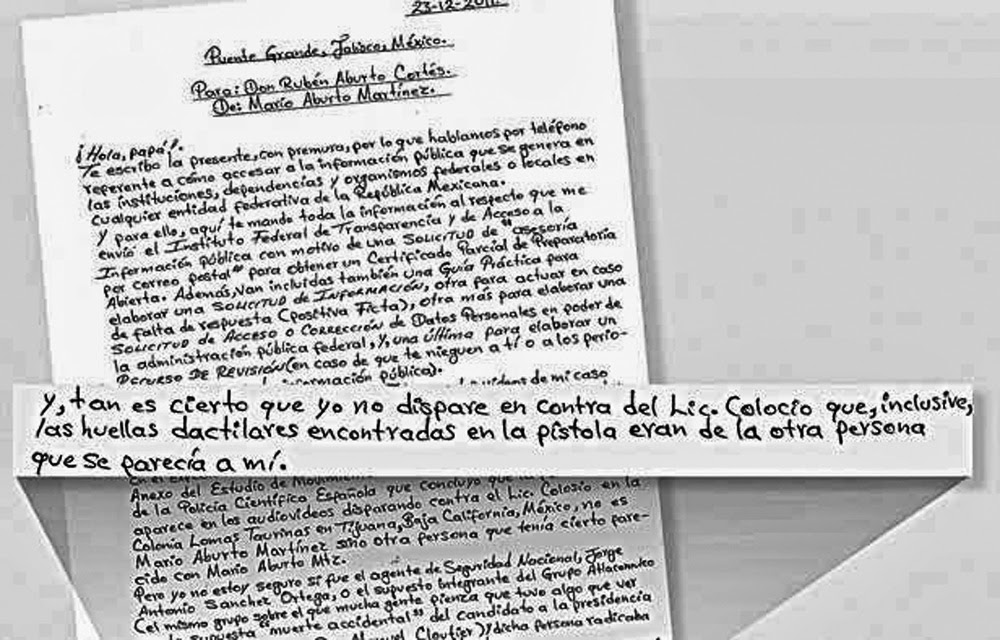 23-12-2011.
Puente Grande, Jalisco, México.
Para: Don Rubén Aburto Cortés.
De: Mario Aburto Martínez.
¡Hola, papá!.
Te escribo la presente, con premura, por lo que hablamos por teléfono
referente a cómo accesar a la información pública que se genera en
las instituciones, dependencias y organismos federales o locales en
cualquier entidad federativa de la República Mexicana.
Y para ello, aquí te mando toda la información al respecto que me
envío el Instituto Federal de Transparencia y de Acceso a la
Información Pública con motivo de una SOLICITUD de "asesoría
por correo postal" para obtener un Certificado Parcial de Preparatoria
Abierta. Además, van incluidas también una Guía Práctica para
elaborar una SOLICITUD de INFORMACIÓN, otra para actuar en caso
de falta de respuesta (Positiva Ficta), otra más para elaborar una
SOLICITUD DE ACCESO O CORRECCIÓN de Datos Personales en poder de
la administración pública federal, y, una última para elaborar un
RECURSO DE REVISIÓN (en caso de que te nieguen a tí o a los perio-
información pública).
de mi caso
Y, tan es cierto que yo no dispare en contra del Lic. Colocio que, inclusive,
las huellas dactilares encontradas en la pistola eran de la otra persona
que se parecía a mí.
Anexo del Estudio de
de la Policía Científica Española que concluyó que
aparece en los audiovideos disparando contra el Lic. Colosio en la
Colonia Lomas Taurinas en Tijuana, Baja California, México, no es
Mario Aburto Martínez sino otra persona que tenía cierto pare-
cido con Mario Aburto Mtz.
Pero yo no estoy seguro si fue el agente de Seguridad Nacional, Jorge
Antonio Sánchez Ortega, o el supuesto integrante del Grupo Atlacomulco
(el mismo grupo sobre el que mucha gente pienza que tuvo algo que ver
la supuesta "muerte accidental" del candidato a la presidencia
Manuel Clouthier)! dicha persona radicaba